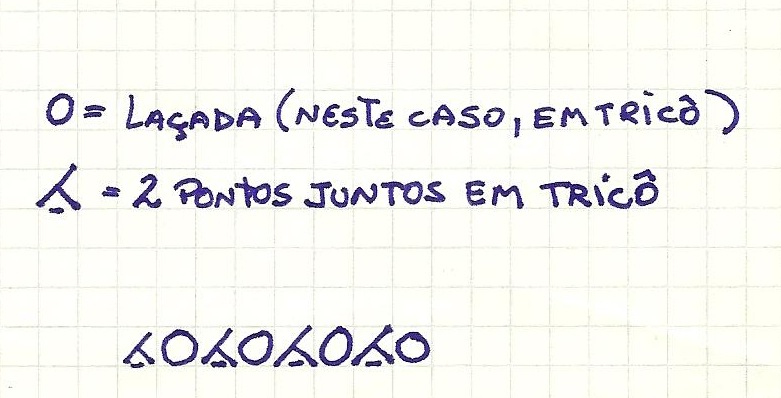 O = LAÇADA (NESTE CASO, EM TRICÔ)
⅄ = 2 PONTOS JUNTOS EM TRICÔ
⅄O⅄O⅄O⅄O